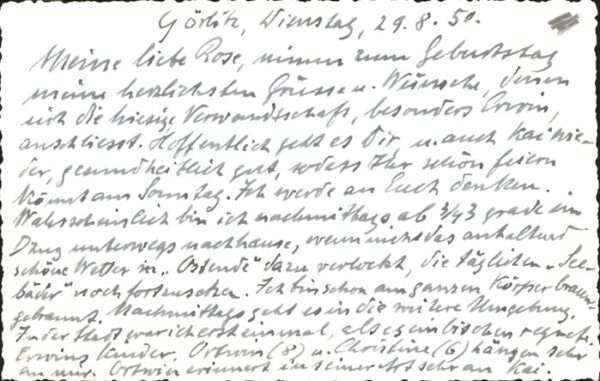 Görlitz, Dienstag, 29.8.50.
Meine liebe Rose, nimm zum Geburtstag
meine herzlichsten Grüsse u. Wünsche, denen
sich die hiesige Verwandtschaft, besonders Erwin,
anschliesst. Hoffentlich geht es Dir, u. auch Kai wie-
der, gesundheitlich gut, sodass Ihr schön feiern
könnt am Sonntag. Ich werde an Euch denken.
Wahrscheinlich bin ich nachmittags ab 3/43 grade im
Dzug unterwegs nachhause, wenn nicht das anhaltend
schöne Wetter in "Ostende" dazu verlockt, die täglichen "See-
bäder" noch fortzusetzen. Ich bin schon am ganzen Körper braun-
gebrannt. Nachmittags geht es in die weitere Umgebung.
In der Stadt war ich erst einmal, als es ein bischen regnete.
Erwins Kinder, Ortwin (8) u. Christine (6) hängen sehr
an mir. Ortwin erinnert in seiner Art sehr an Kai.